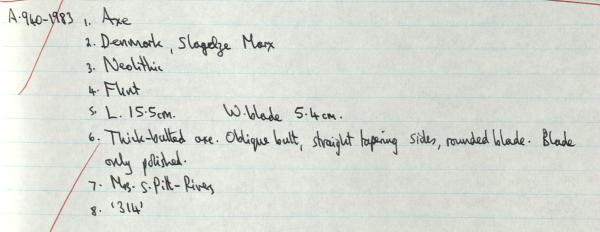 A.940-1983 1. Axe
2. Denmark, Slagelze Marx
3. Neolithic
4. Flint
5. L. 15.5cm. W.blade 5.4cm.
6. Thick-butted axe. Oblique butt, straight tapering sides, rounded blade. Blade
only polished.
7. Mrs. S. Pitt-Rivers
8. '314'